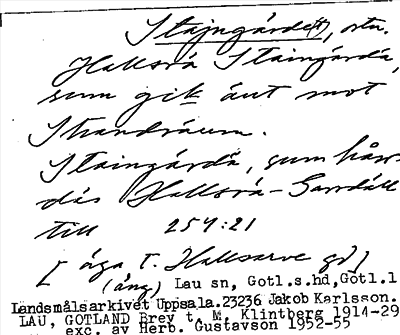 Stajngårde(t), ortn.
Hallsrá Staingárdá,
sum gik áut mot
Strandráum.
Staingárdá, sum håur-
dás Hallsrá-Sarrdáll
till 254:21
[äga t. Hallsarve gd]
(äng) Lau sn, Gotl.s.hd,Gotl.l
Landsmålsarkivet Uppsala.23236 Jakob Karlsson.
LAU, GOTLAND Brev t. M. Klintberg 1914-29
exc. av Herb. Gustavson 1952-55